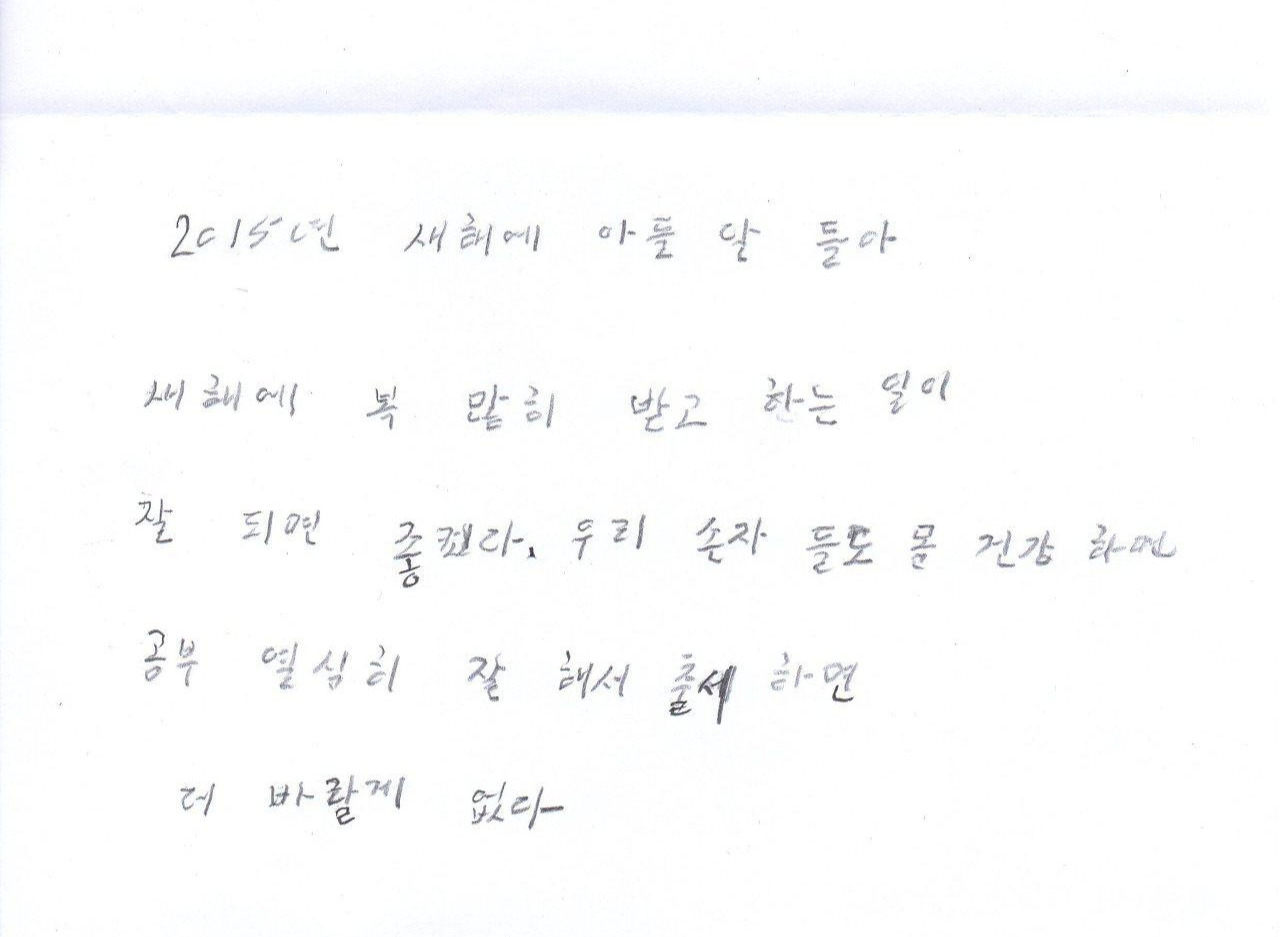 2015년 새해에 아들 달 들아
새해에 복 많히 받고 하는 일이
잘 되면 좋켔다. 우리 손자 들도 몸 건강 하면
공부 열심히 잘 해서 출세 하면
더 바랄게 없다